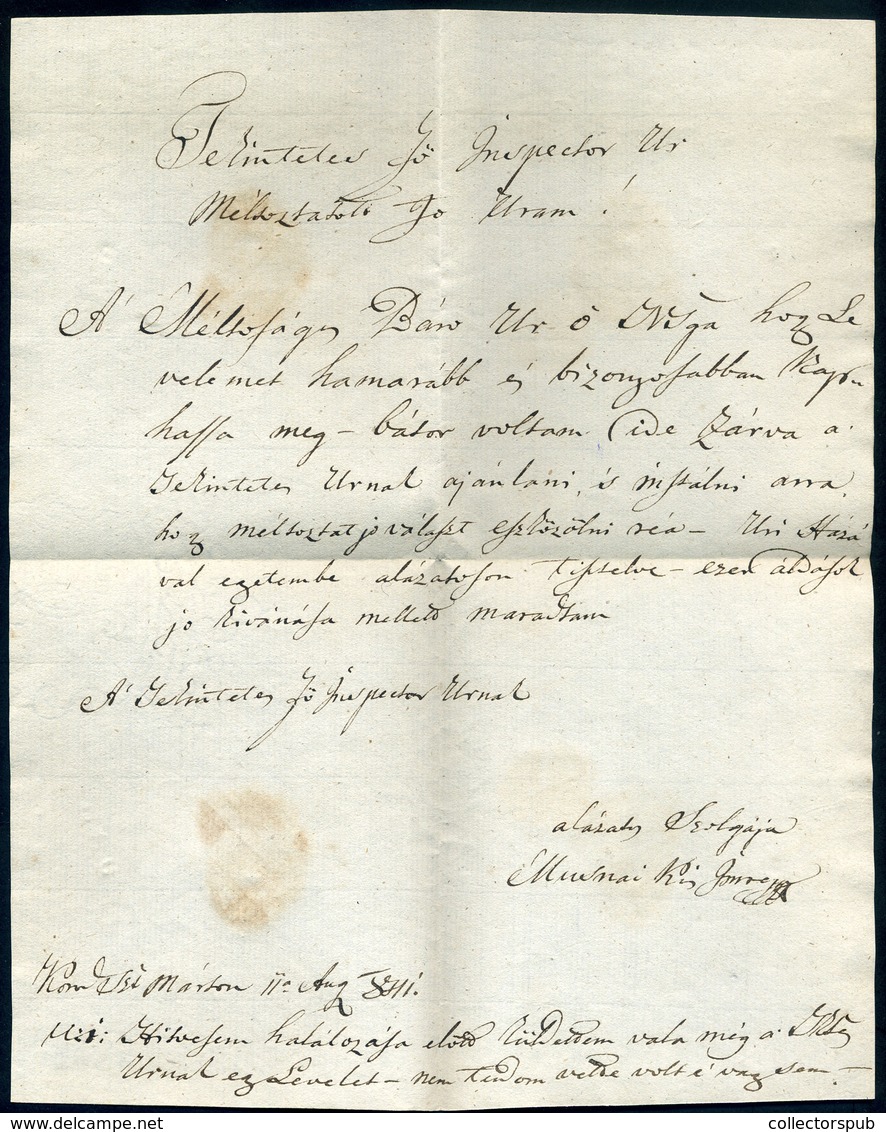 Tekintetes Jó Inspector Ur
Méltoztatott Jo Uram!
A' Méltoságos Báro Ur ő Nsga hogy Le
velemet hamarább és bizonyosabban Kap
hassa meg - bátor voltam ide zárva a
Tekintetes Urnak ajánlani, és instálni arra
hogy méltoztat jo választ eszközölni réa - Uri Házá
val egetembe alázatoson tisztelve - ezer áldások
jo kivánása mellett maradtam
A' Tekintetes Jó Inspector Urnak
alázatos Szolgája
Musnai Kis Imre
Szt Márton 11a Aug 1841.
Hitvesem halálozása előtt küldettem vala még a
Urnak egy Levelet - nem tudom vette volt é vagy sem -
collectorspub.com